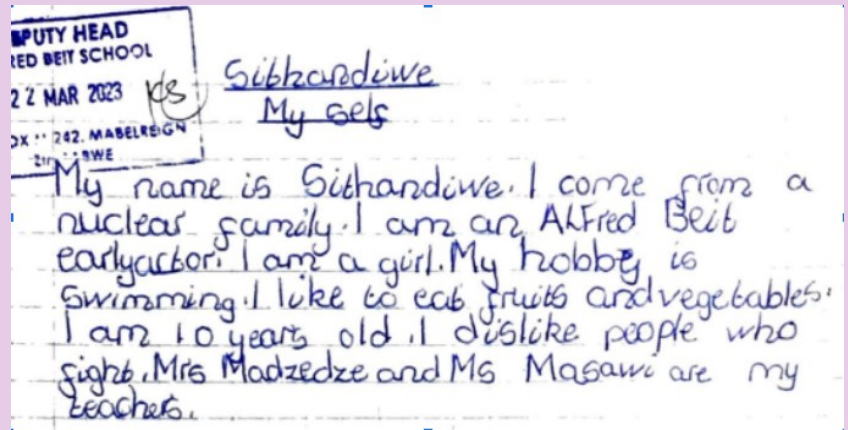 PUTY HEAD
RED BEIT SCHOOL
22 MAR 2023
OX 242. MABELREIGN
BWE
Sithandiwe
My self
My name is Sithandiwe. I come from a
nuclear family. I am an ALFred Beit
earlyactor. I am a girl. My hobby is
swimming. I like to eat fruits and vegetables.
I am 10 years old. I dislike people who
fight. Mrs Madzedze and Ms Masawi are my
teachers.